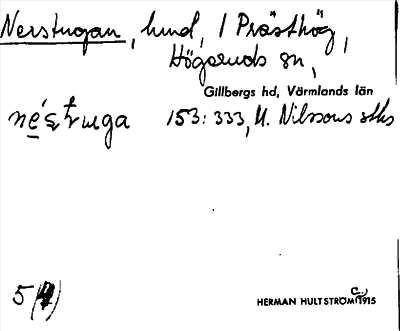 Nerstugan, hund, 1 Prästhög,
Högeruds sn,
Gillbergs hd, Värmlands län
153:333, U. Nilssons stks
5(4)
HERMAN HULTSTRÖM C. 1915